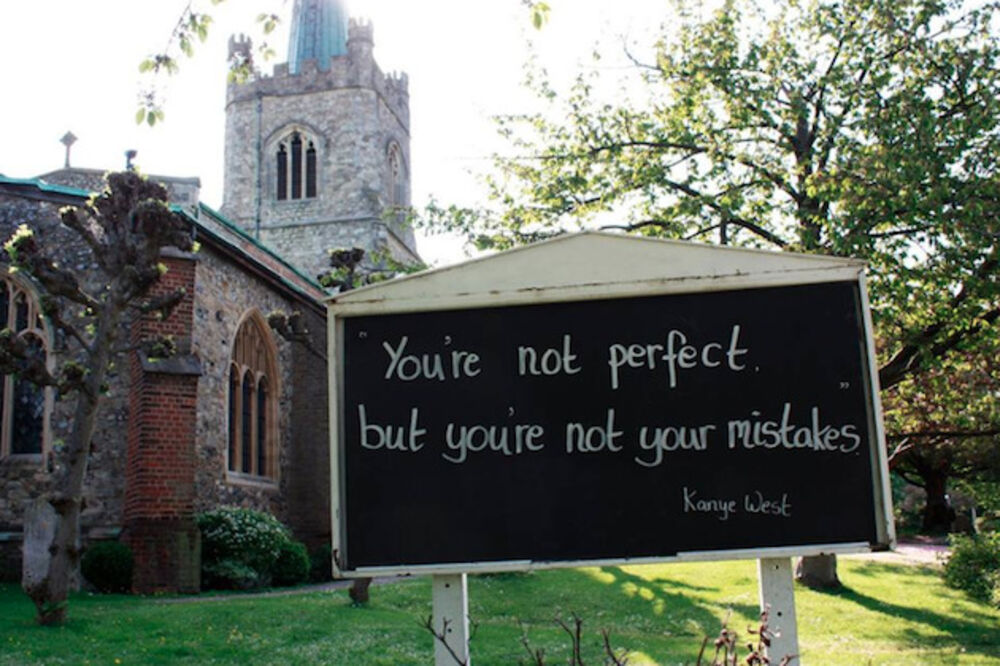 "You're not perfect.
but you're not your mistakes."
Kanye West